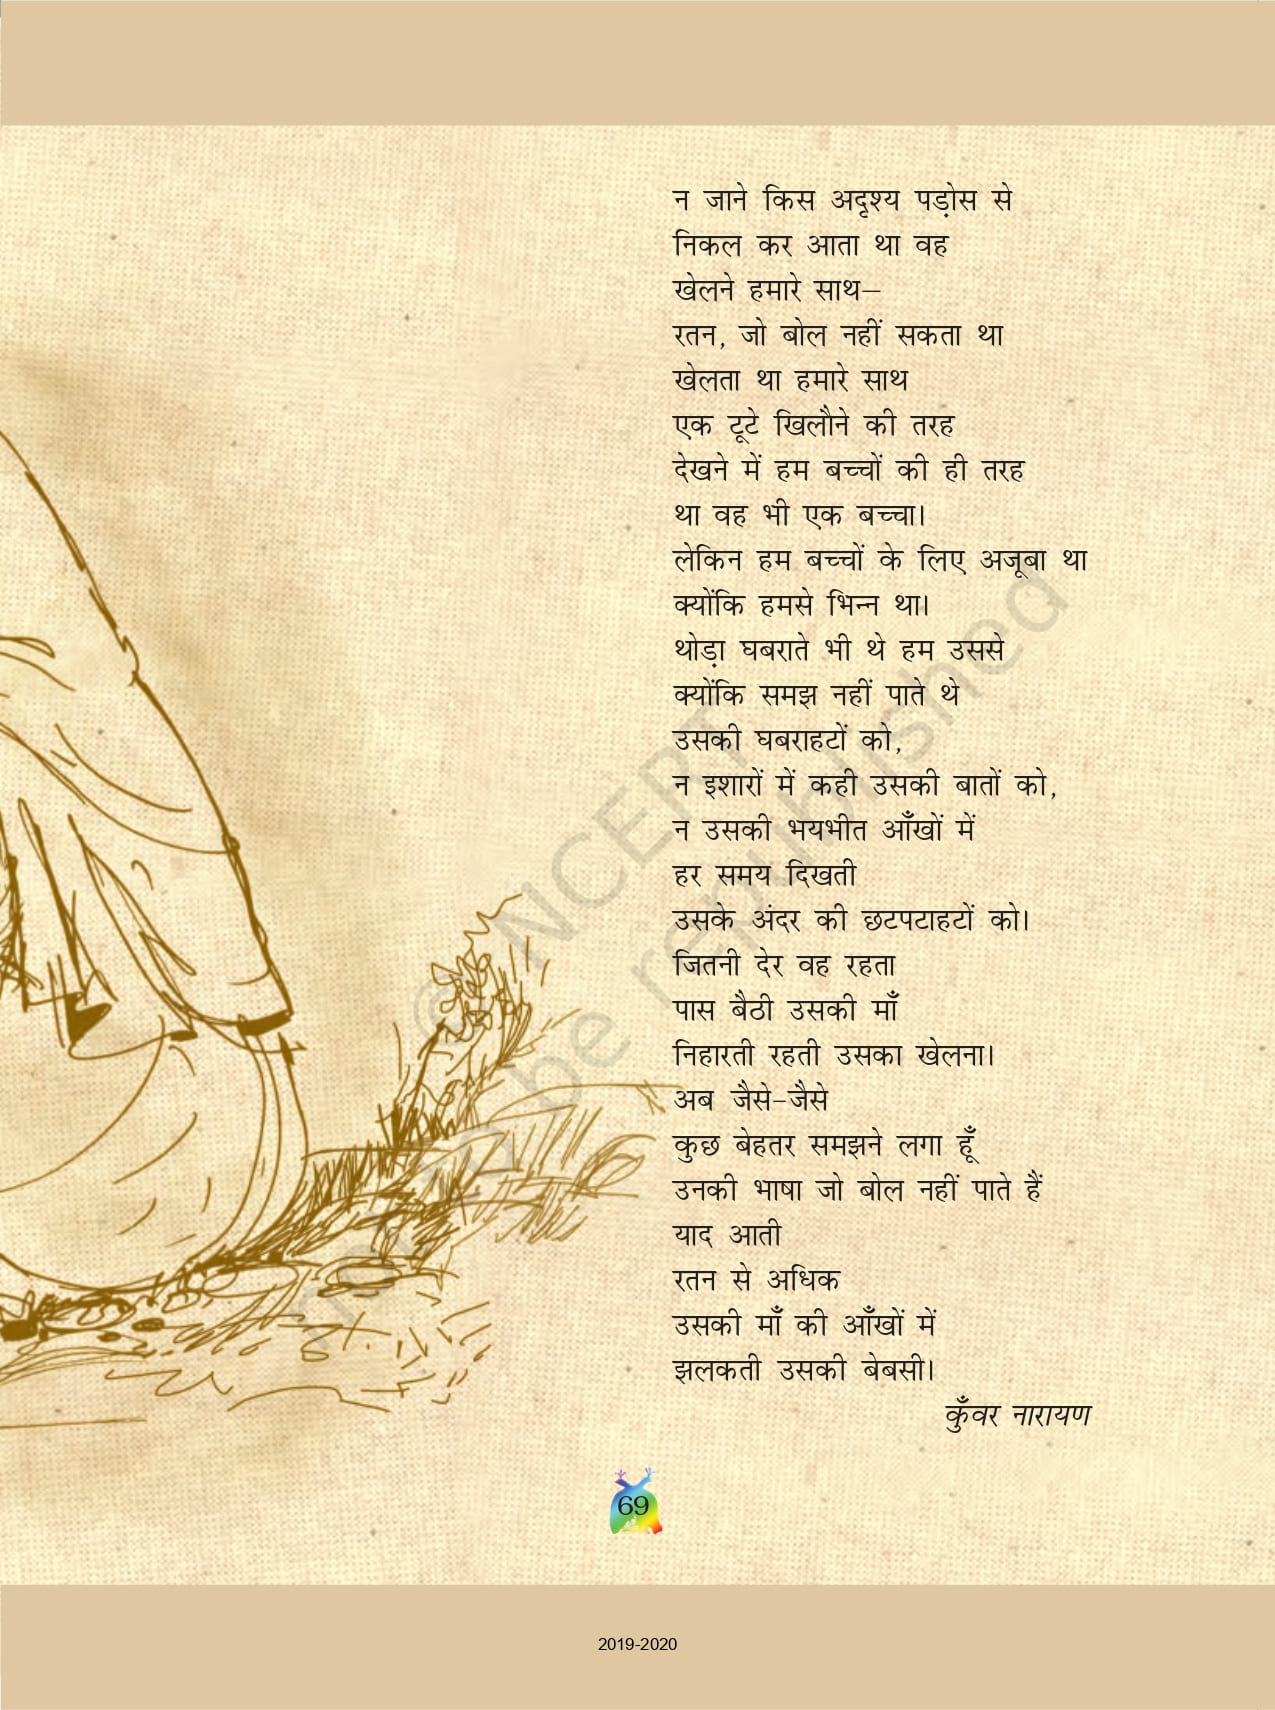 न जाने किस अदृश्य पड़ोस से
निकल कर आता था वह
खेलने हमारे साथ–
रतन, जो बोल नहीं सकता था
खेलता था हमारे साथ
एक टूटे खिलौने की तरह
देखने में हम बच्चों की ही तरह
था वह भी एक बच्चा।
लेकिन हम बच्चों के लिए अजूबा था
क्योंकि हमसे भिन्न था।
थोड़ा घबराते भी थे हम उससे
क्योंकि समझ नहीं पाते थे
उसकी घबराहटों को,
न इशारों में कही उसकी बातों को,
न उसकी भयभीत आँखों में
हर समय दिखती
उसके अंदर की छटपटाहटों को।
जितनी देर वह रहता
पास बैठी उसकी माँ
निहारती रहती उसका खेलना।
अब जैसे-जैसे
कुछ बेहतर समझने लगा हूँ
उनकी भाषा जो बोल नहीं पाते हैं
याद आती
रतन से अधिक
उसकी माँ की आँखों में
झलकती उसकी बेबसी।
कुँवर नारायण
© NCERT
not to be republished
69
2019-2020